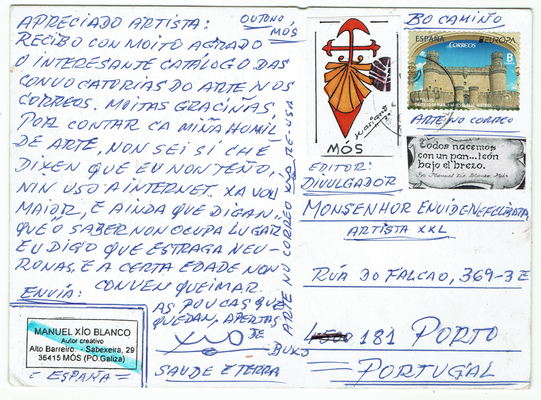 APRECIADO ARTISTA: OUTONO,
MOS
RECIBO CON MOITO AGRADO
O INTERESANTE CATÁLOGO DAS
CONVOCATORIAS DO ARTE NOS
CORREOS. MOITAS GRACIÑAS,
POR CONTAR CA MIÑA HUMIL
DE ARTE, NON SEI SÍ CHÉ
DIXEN QUE EU NON TEÑO,
NIN USO A INTERNET. XA VOU
MAIOR, E AINDA QUE DIGAN"
QUE O SABER NON OCUPA LUGAR
EU DIGO QUE ESTRAGA NEU-
RONAS. E A CERTA EDADE NON
CONVEN QUEIMAR.
AS POUCAS QUE
QUEDAN, APERTAS
DE
SAUDE E TERRA
ENVÍA:
MANUEL XÍO BLANCO
Autor creativo
Alto Barreiro. - Sabexeira, 29
36415 MÓS (PO.Galiza)
= ESPAÑA =
ARTE NO CORREO XXL RE-USA
MÓS
BO CAMIÑO
ESPAÑA
CORREOS
EUROPA
B
ARTE NO CORREO
Todos nacemos
con un pan...icón
bajo el brezo.
EDITOR:
DIVULGADOR
MONSENHOR ENVIDENEFELIBATA
ARTISTA XXL
RUA DO FALCAO, 369-3E
181 PORTO
PORTUGAL